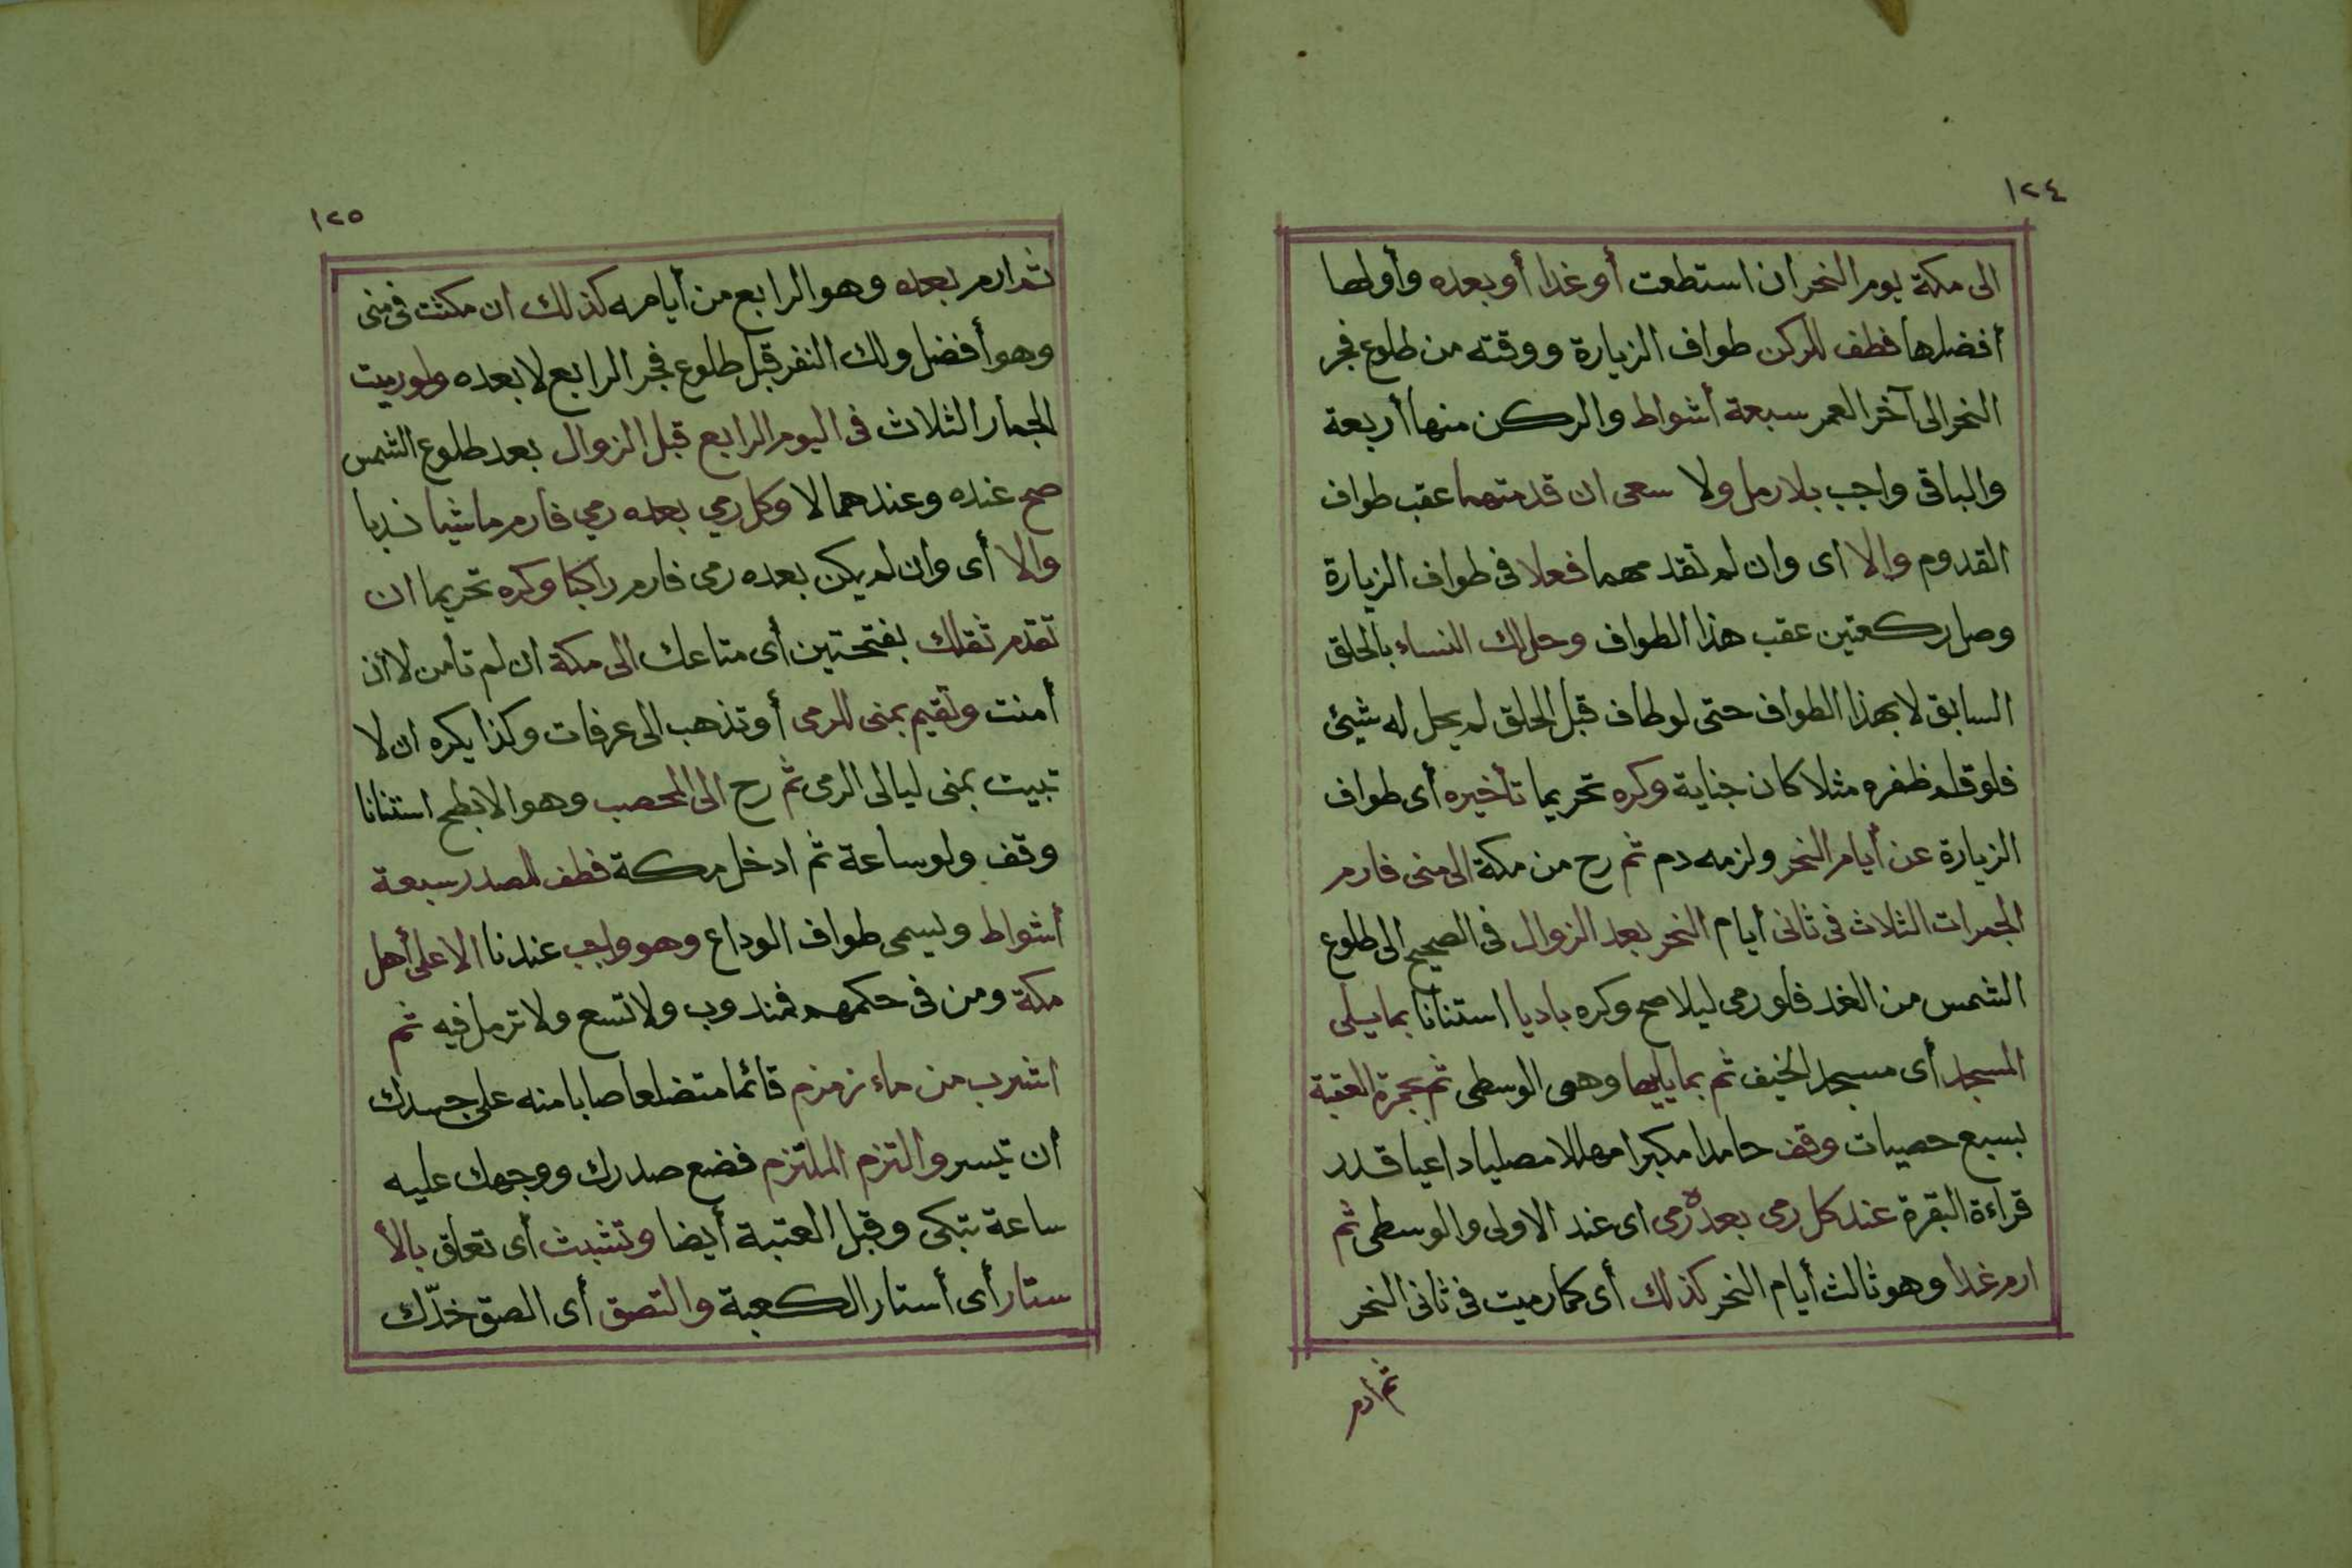 ١٢٤
الى مكة يوم النحر ان استطعت أو غدا أو بعده وأولها
أفضلها فطف للركن طواف الزيارة ووقته من طلوع فجر
النحر الى آخر العمر سبعة أشواط والركن منها أربعة
والباقى واجب بلا رمل ولا سعى ان قدمتهما عقب طواف
القدوم والا اى وان لم تقدمهما فعلا فى طواف الزيارة
وصل ركعتين عقب هذا الطواف وحل لك النساء بالحلق
السابق لا بهذا الطواف حتى لو طاف قبل الحلق لم يحل له شيئ
فلو قلم ظفره مثلا كان جناية وكره تحريما تأخيره أى طواف
الزيارة عن أيام النحر ولزمه دم ثم رح من مكة الى منى فارم
الجمرات الثلاث فى ثانى أيام النحر بعد الزوال فى الصحيح الى طلوع
الشمس من الغد فلو رمى ليلا صح وكره باديا استنانا بما يلى
المسجد أى مسجد الخيف ثم بما يليها وهى الوسطى ثم بجمرة العقبة
بسبع حصيات وقف حامدا مكبرا مهللا مصليا داعيا قدر
قراءة البقرة عند كل رمى بعده رمى اى عند الاولى والوسطى ثم
ارم غدا وهو ثالث أيام النحر كذلك أى كما رميت فى ثانى النحر
ثم ارم
١٢٥
ثم ارم بعده وهو الرابع من أيامه كذلك ان مكثت فى منى
وهو أفضل ولك النفر قبل طلوع فجر الرابع لا بعده ولو رميت
الجمار الثلاث فى اليوم الرابع قبل الزوال بعد طلوع الشمس
صح عنده وعندهما لا وكل رمي بعده رمي فارم ماشيا ندبا
والا أى وان لم يكن بعده رمى فارم راكبا وكره تحريما ان
تقدم ثقلك بفتحتين أى متاعك الى مكة ان لم تأمن لا ان
أمنت وتقيم بمنى للرمى أو تذهب الى عرفات وكذا يكره ان لا
تبيت بمنى ليالى الرمى ثم رح الى المحصب وهو الابطح استنانا
وقف ولو ساعة ثم ادخل مكة فطف للصدر سبعة
أشواط ويسمى طواف الوداع وهو واجب عندنا الا على أهل
مكة ومن فى حكمهم فمندوب ولا تسع ولا ترمل فيه ثم
اشرب من ماء زمزم قائما متضلعا صابا منه على جسدك
ان تيسر والتزم الملتزم فضع صدرك ووجهك عليه
ساعة تبكى وقبل العتبة أيضا وتشبث أى تعلق بالأ
ستار أى أستار الكعبة والتصق أى الصق خدّك